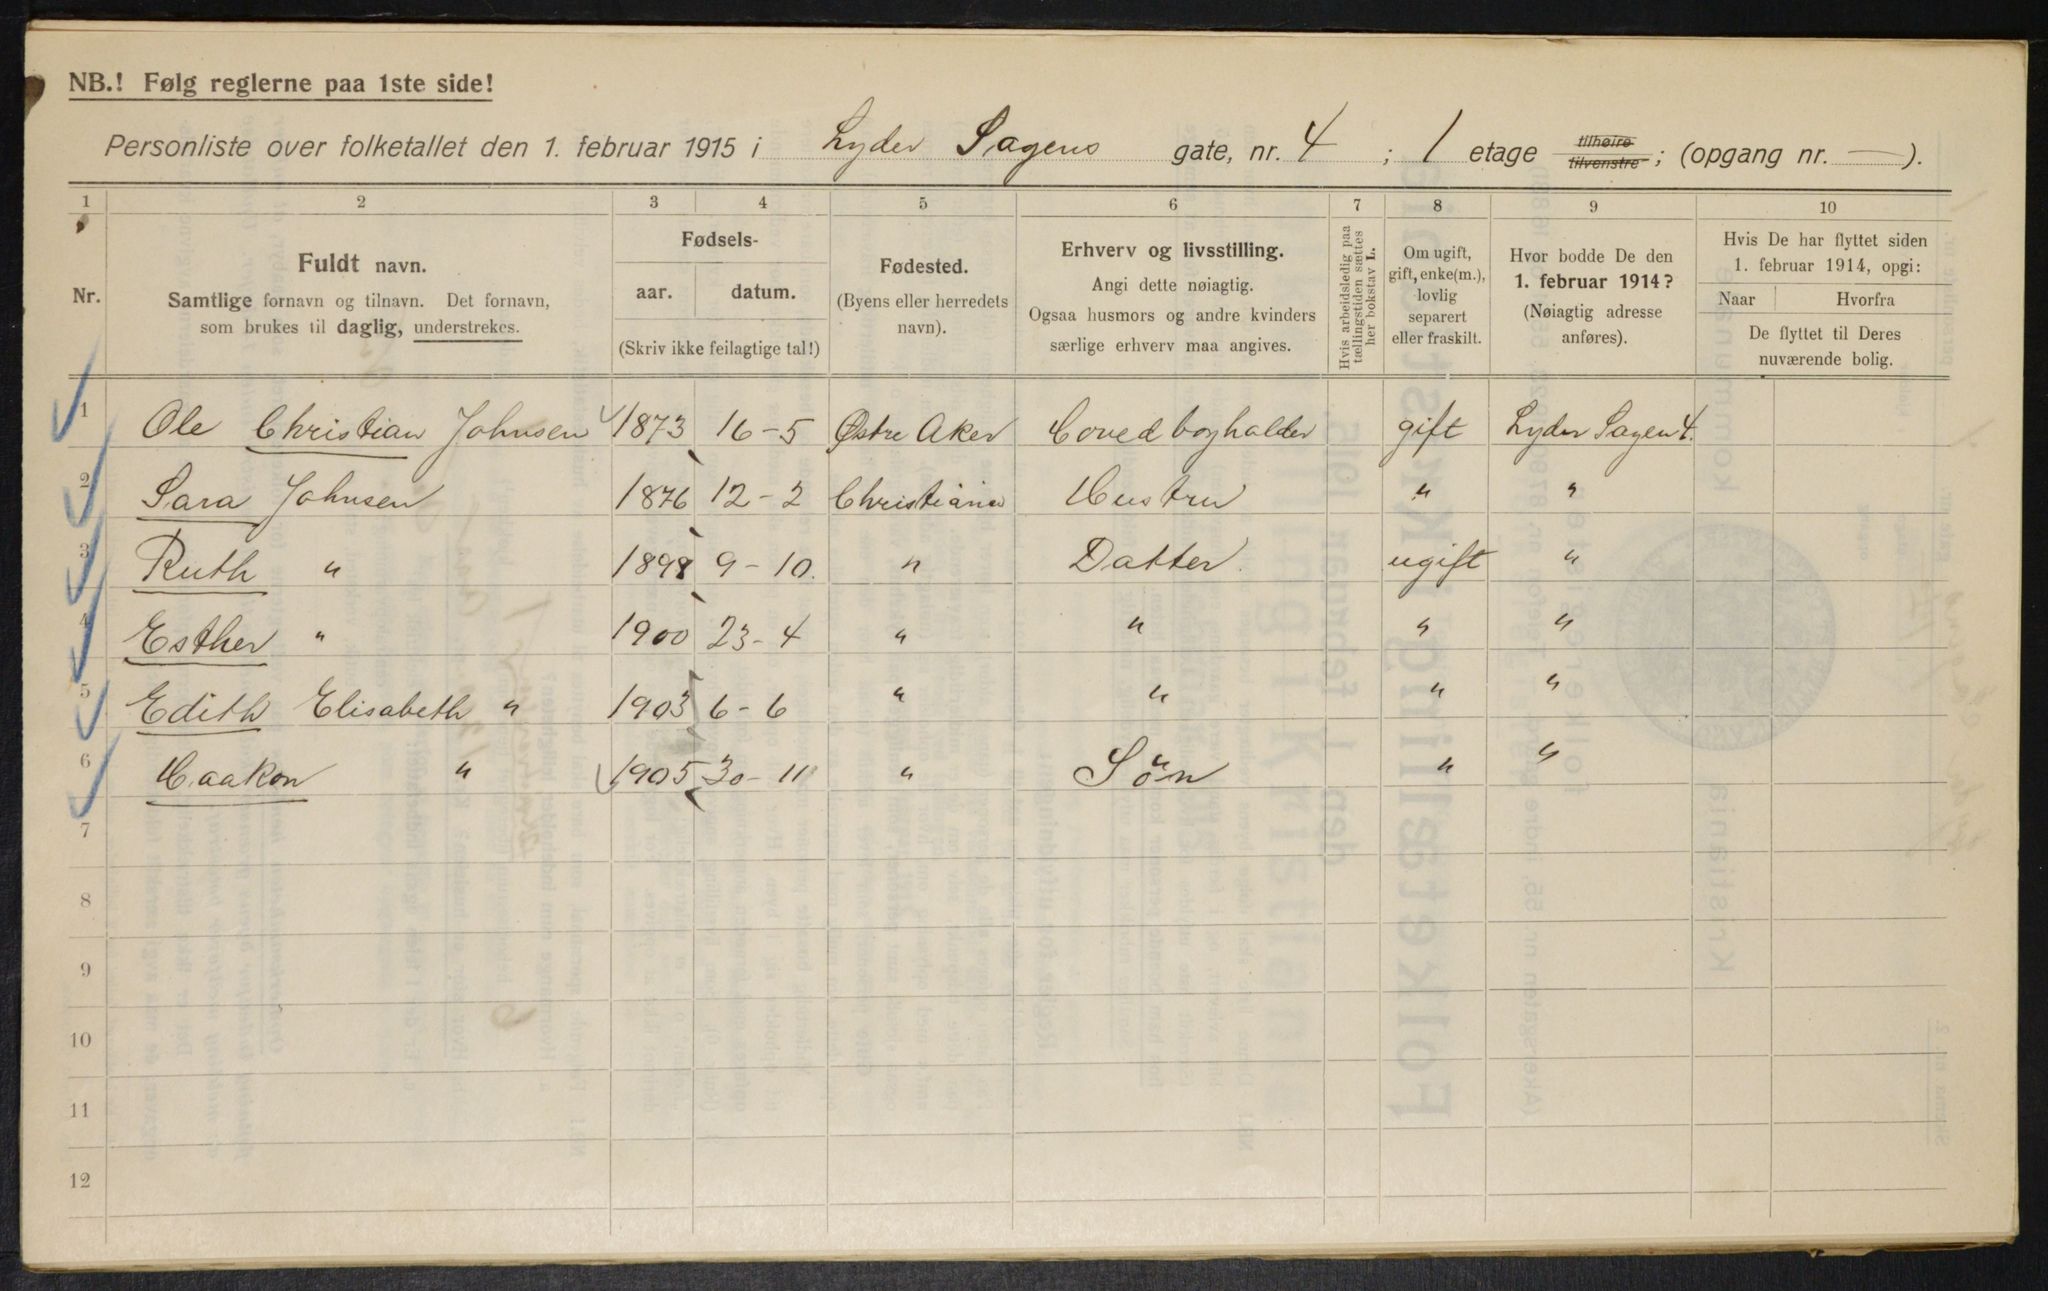 NB.! Følg reglerne paa 1ste side!
Personliste over folketallet den 1. februar 1915 i Lyder Sagens gate, nr. 4 ; 1 etage tilhøire tilvenstre ; (opgang nr. — ).
1 2 3 4 5 6 7 8 9 10
Nr.
Fuldt navn.
Samtlige fornavn og tilnavn. Det fornavn,
som brukes til daglig, understrekes.
Fødsels-
aar. datum.
(Skriv ikke feilagtige tal!)
Fødested.
(Byens eller herredets
navn).
Erhverv og livsstilling.
Angi dette nøiagtig.
Ogsaa husmors og andre kvinders
særlige erhverv maa angives.
Hvis arbeidsledig paa
tællingstiden sættes
her bokstav L.
Om ugift,
gift, enke(m.),
lovlig
separert
eller fraskilt.
Hvor bodde De den
1. februar 1914?
(Nøiagtig adresse
anføres).
Hvis De har flyttet siden
1. februar 1914, opgi:
Naar Hvorfra
De flyttet til Deres
nuværende bolig.
1 Ole Christian Johnsen 1873 16-5 Østre Aker Hovedbogholder gift Lyder Sagen 4.
2 Sara Johnsen 1876 12-2 Christiania Hustru " "
3 Ruth " 1898 9-10. " Datter. ugift "
4 Esther " 1900 23-4 " " " "
5 Edith Elisabeth " 1903 6-6 " " " "
6 Haakon " 1905 30-11 " Søn " "
7
8
9
10
11
12